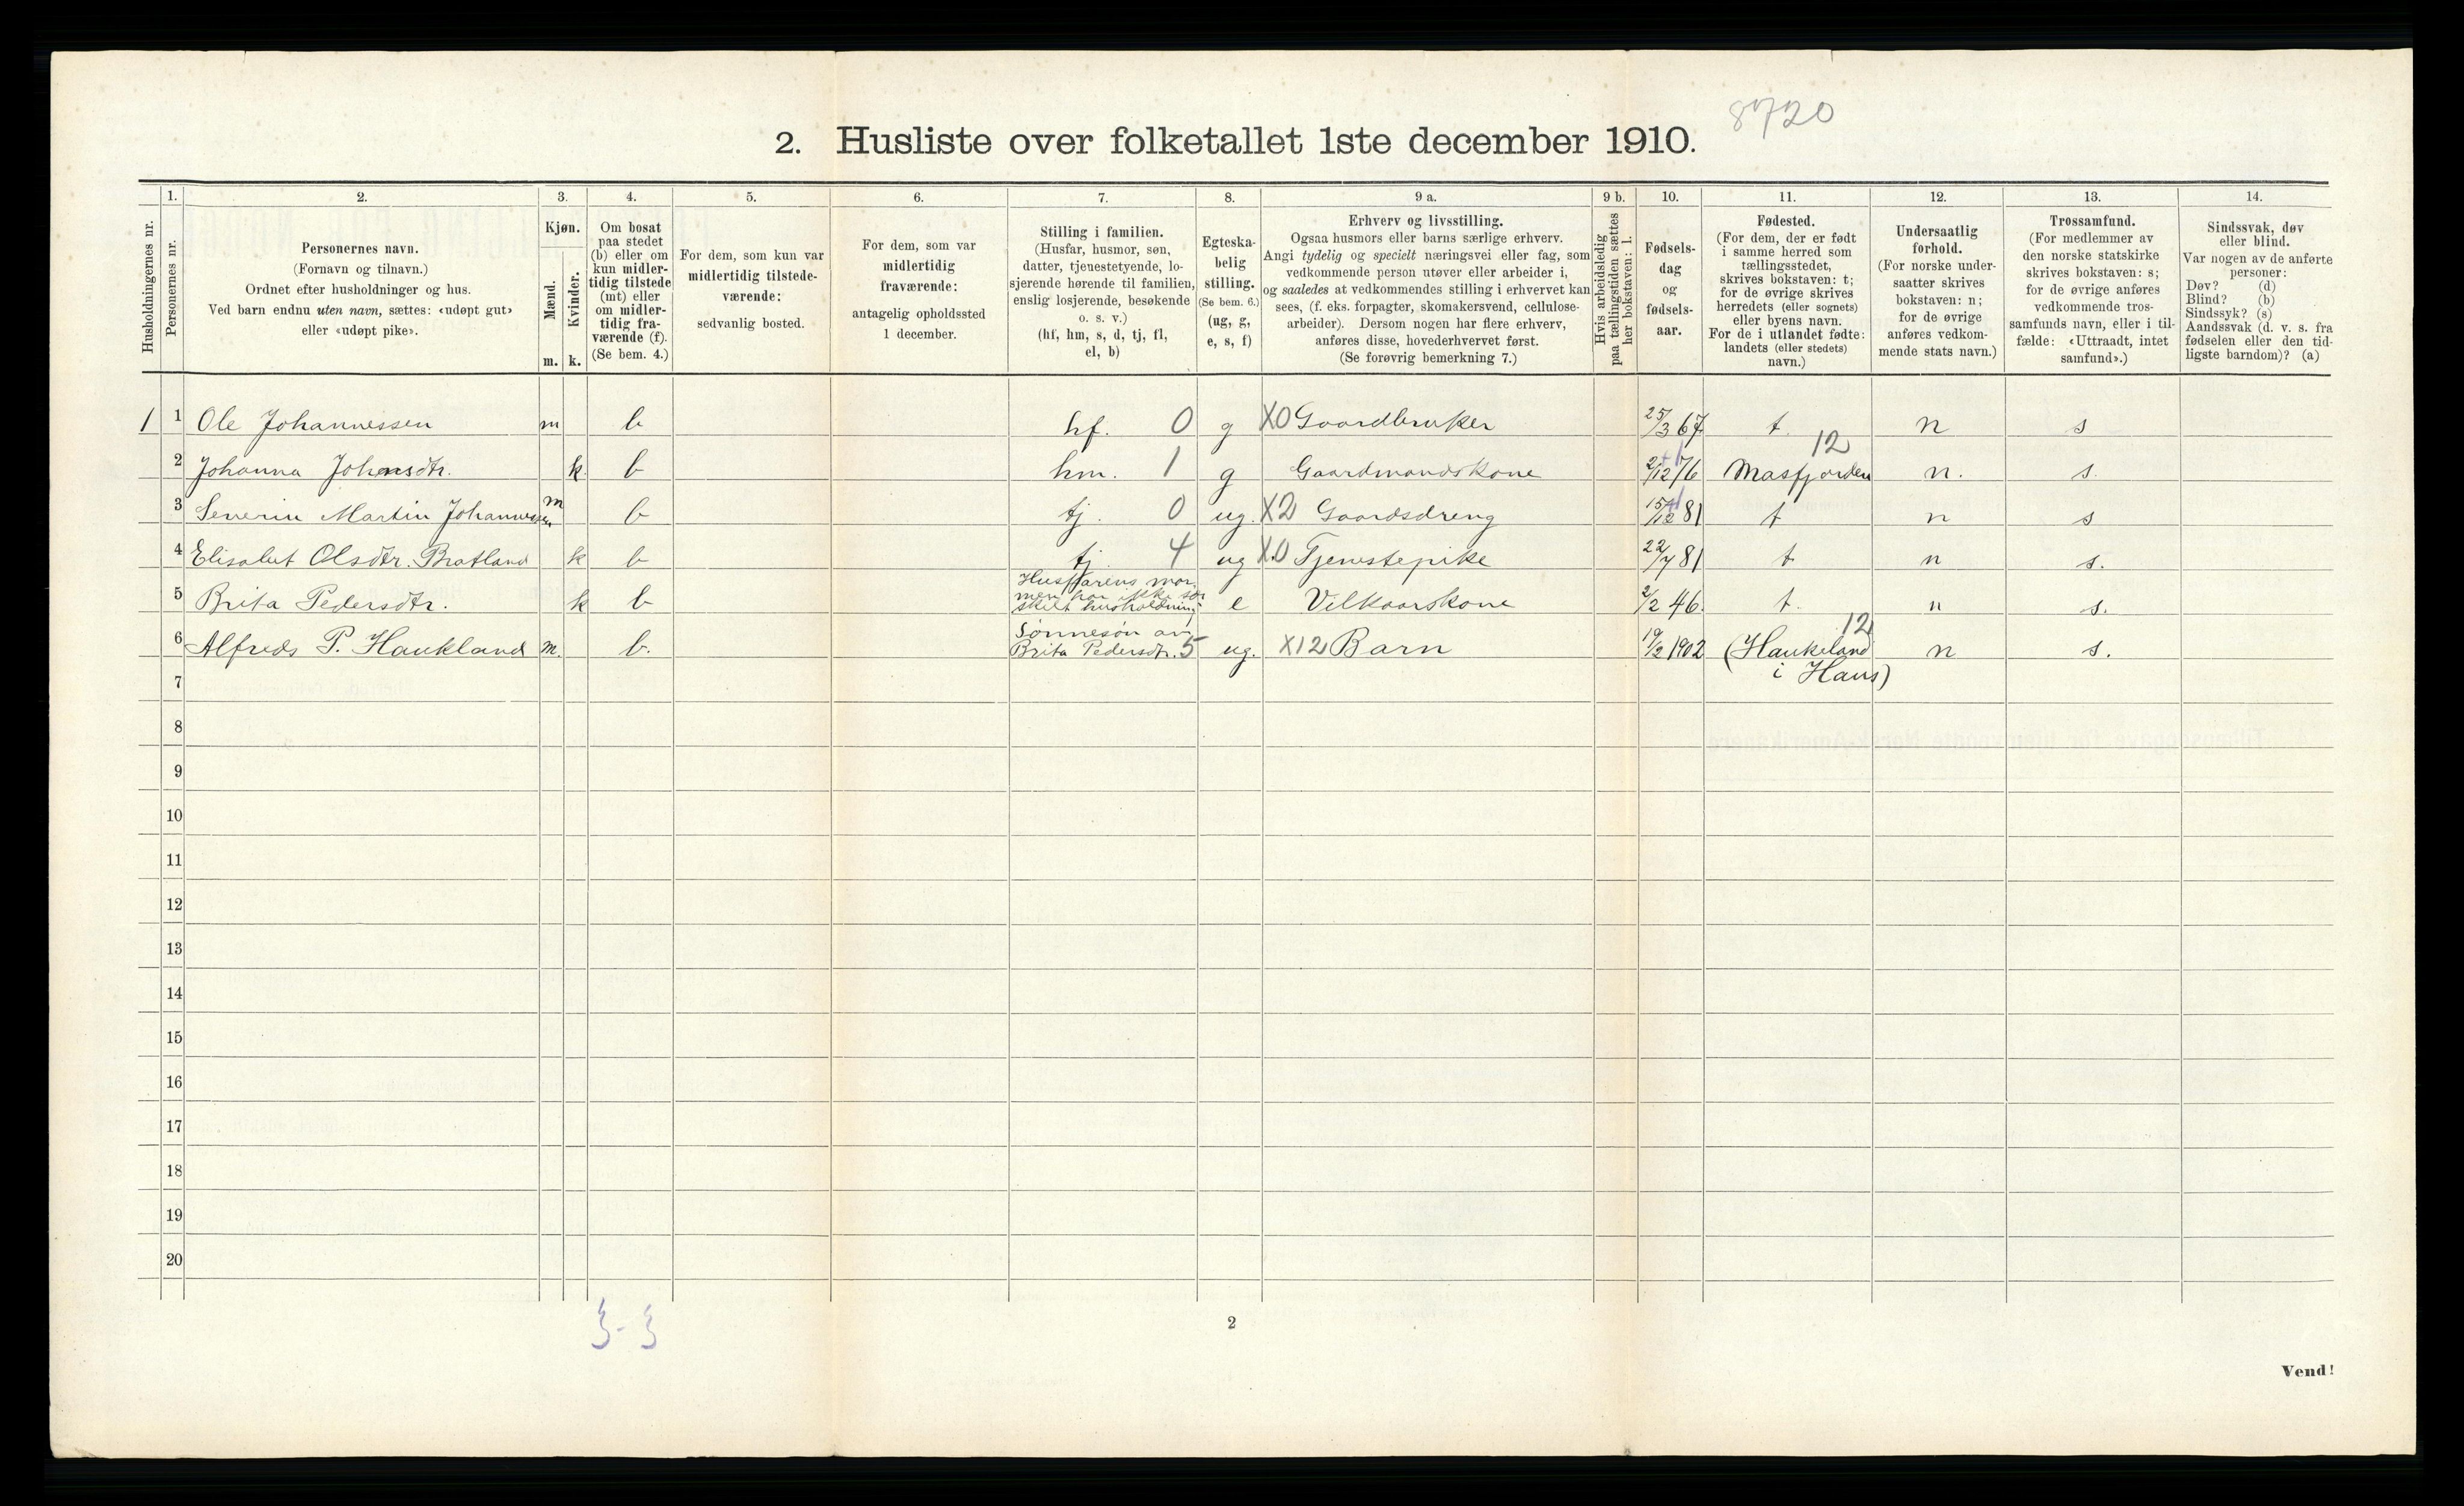 8720
2. Husliste over folketallet 1ste december 1910.
Husholdningernes nr.
1.
Personernes nr.
2.
Personernes navn.
(Fornavn og tilnavn.)
Ordnet efter husholdninger og hus.
Ved barn endnu uten navn, sættes: «udøpt gut»
eller «udøpt pike».
3.
Kjøn.
Mænd.
Kvinder.
m. k.
4.
Om bosat
paa stedet
(b) eller om
kun midler-
tidig tilstede
(mt) eller
om midler-
tidig fra-
værende (f).
(Se bem. 4.)
5.
For dem, som kun var
midlertidig tilstede-
værende:
sedvanlig bosted.
6.
For dem, som var
midlertidig
fraværende:
antagelig opholdssted
1 december.
7.
Stilling i familien.
(Husfar, husmor, søn,
datter, tjenestetyende, lo-
sjerende hørende til familien,
enslig losjerende, besøkende
o. s. v.)
(hf, hm, s, d, tj, fl,
el, b)
8.
Egteska-
belig
stilling.
(Se bem. 6.)
(ug, g,
e, s, f)
9 a.
Erhverv og livsstilling.
Ogsaa husmors eller barns særlige erhverv.
Angi tydelig og specielt næringsvei eller fag, som
vedkommende person utøver eller arbeider i,
og saaledes at vedkommendes stilling i erhvervet kan
sees, (f. eks. forpagter, skomakersvend, cellulose-
arbeider). Dersom nogen har flere erhverv,
anføres disse, hovederhvervet først.
(Se forøvrig bemerkning 7.)
9 b.
Hvis arbeidsledig
paa tællingstiden sættes
her bokstaven: l.
10.
Fødsels-
dag
og
fødsels-
aar.
11.
Fødested.
(For dem, der er født
i samme herred som
tællingsstedet,
skrives bokstaven: t;
for de øvrige skrives
herredets (eller sognets)
eller byens navn.
For de i utlandet fødte:
landets (eller stedets)
navn.)
12.
Undersaatlig
forhold.
(For norske under-
saatter skrives
bokstaven: n;
for de øvrige
anføres vedkom-
mende stats navn.)
13.
Trossamfund.
(For medlemmer av
den norske statskirke
skrives bokstaven: s;
for de øvrige anføres
vedkommende tros-
samfunds navn, eller i til-
fælde: «Uttraadt, intet
samfund».)
14.
Sindssvak, døv
eller blind.
Var nogen av de anførte
personer:
Døv? (d)
Blind? (b)
Sindssyk? (s)
Aandssvak (d. v. s. fra
fødselen eller den tid-
ligste barndom)? (a)
1 1 Ole Johannessen m b hf. 0 g X0 Gaardbruker 25/3 67 t. n s
2 Johanna Johansdtr. k. b hm. 1 g Gaardmandskone 2/12 76 12 Masfjorden n. s.
3 Severin Martin Johannessen m b tj. 0 ug. X2 Gaardsdreng 15/12 81 t n s
4 Elisabet Olsdtr. Bratland k b tj. 4 ug X.0 Tjenestepike 22/7 81 t n s.
5 Brita Pedersdtr. k b Husfarens mor, men har ikke sær skilt husholdning e Vilkaarskone 2/2 46. t. n s.
6 Alfreds P. Haukland m. b. Sønnesøn av Brita Pedersdtr. 5 ug. X12 Barn 19/2 1902 12 (Haukeland i Haus) n s.
7
8
9
10
11
12
13
14
15
16
17
18
19
20
3-3
2
Vend!